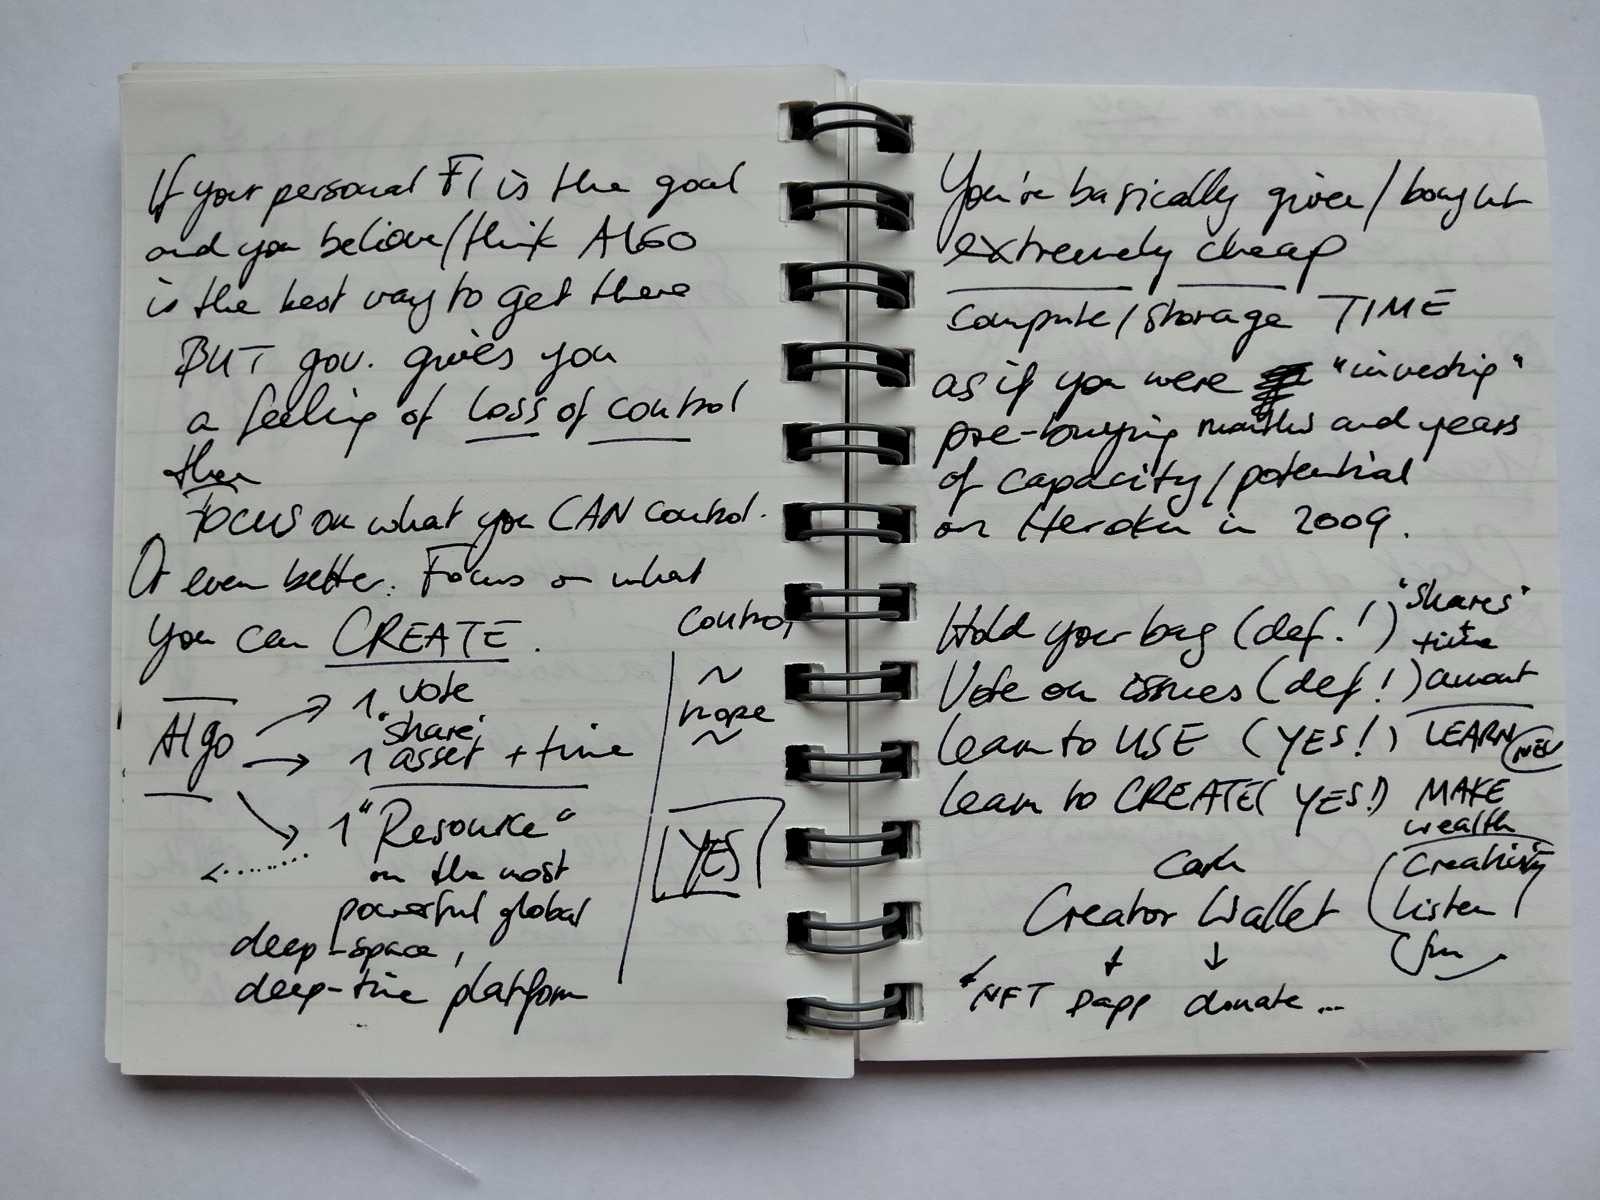 If your personal FI is the goal
and you believe/think ALGO
is the best way to get there
BUT gov. gives you
a feeling of loss of control
then
FOCUS on what you CAN control.
Or even better. Focus on what
you can CREATE.
Algo
1 vote
"share"
1 asset + time
1 "Resource"
on the most
powerful global
deep-space,
deep-time platform
control
~
nope
~
YES
You're basically given/bought
extremely cheap
compute/storage TIME
as if you were "investing"
pre-buying months and years
of capacity/potential
on Heroku in 2009.
Hold your bag (def.!) "shares"
+
time
Vote on issues (def!) amount
learn to USE (YES!) LEARN
learn to CREATE (YES!) MAKE
wealth
Creator Wallet
Creativity
Listen
fun
NFT Dapp donate...